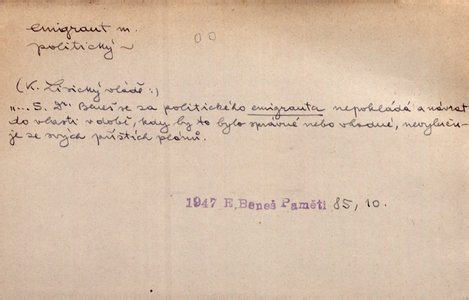 emigrant m.
politický ~
(K. Lisický vládě:)
„... S. Dr. Beneš se za politického emigranta nepokládá a návrat
do vlasti v době, kdy by to bylo správné nebo vhodné, nevyluču-
je ze svých příštích plánů.
1947 E. Beneš Paměti 85, 10.